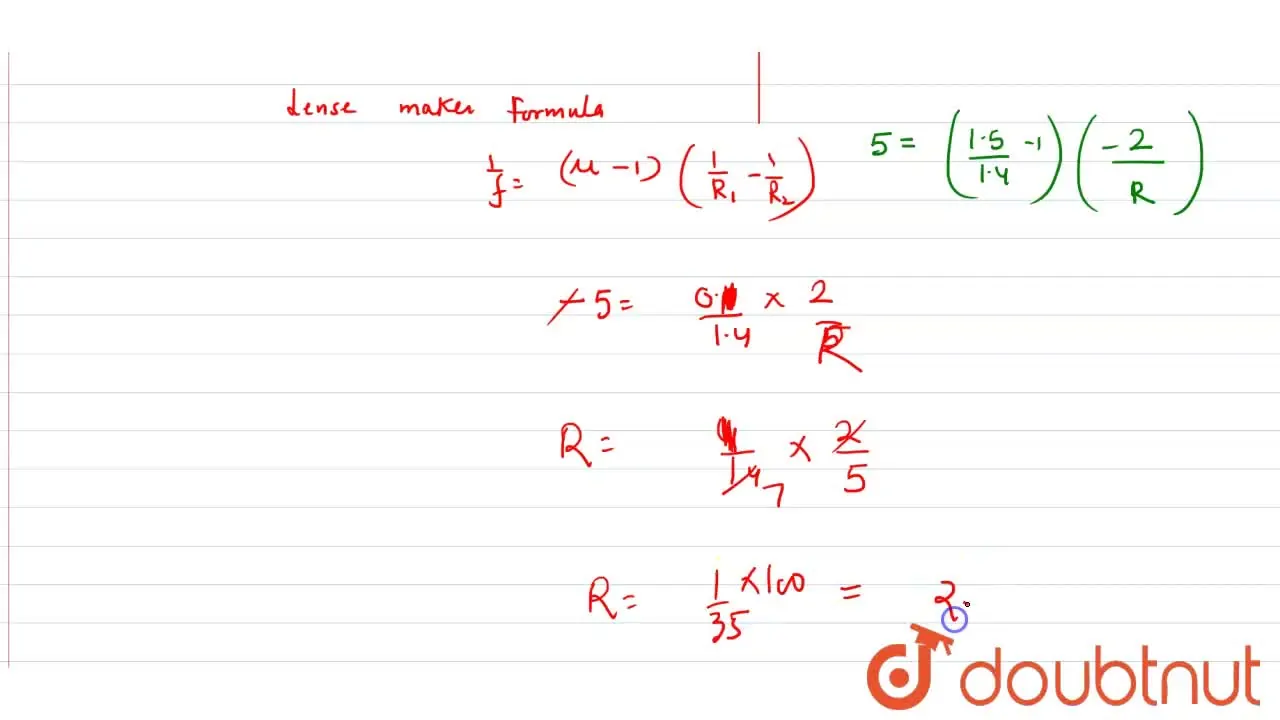 Lense maker formula
1/f = (μ - 1) (1/R₁ - 1/R₂)
5 = (1.5/1.4 - 1) (-2/R)
-5 = 0.1/1.4 × 2/R
R = 1/14 7 × 2/5
R = 1/35 × 100 = 2.
doubtnut